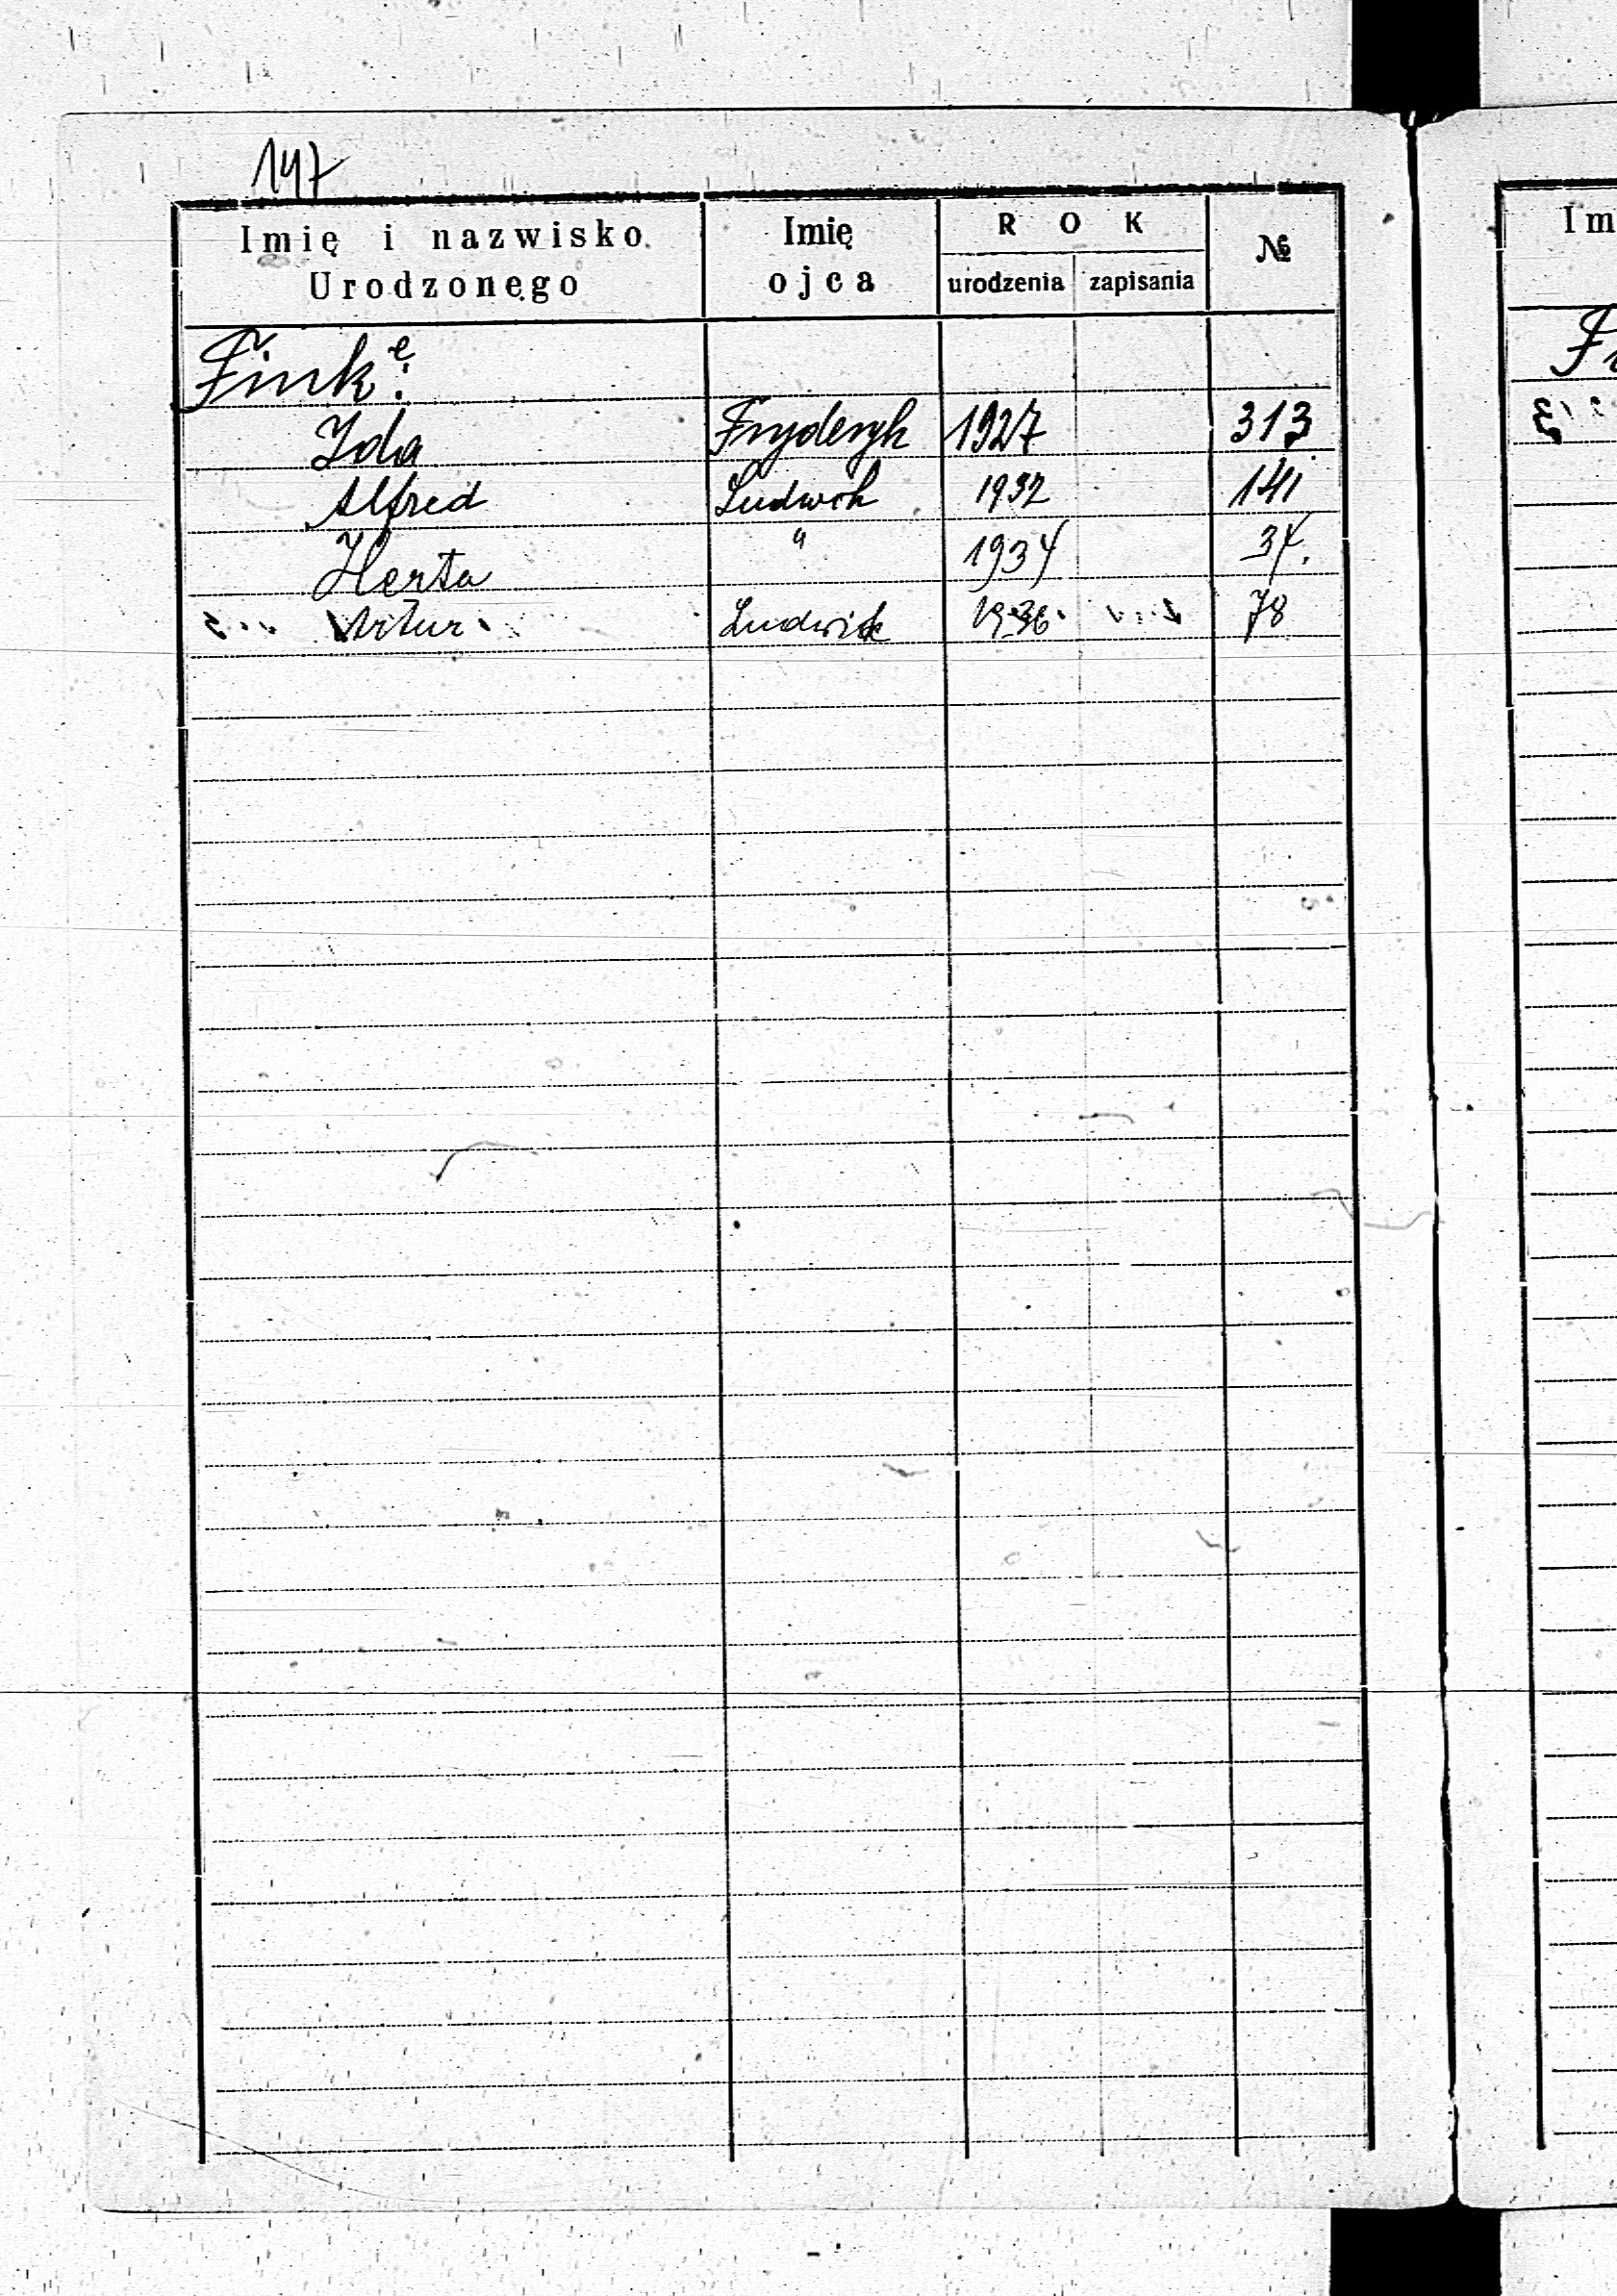 147
Imię i nazwisko Urodzonego Imię ojca ROK urodzenia zapisania №
Finke:
Ida Fryderyk 1927 313
Alfred Ludwik 1932 141
Herta " 1934 34.
Artur Ludwik 1936 78
Im
Fi